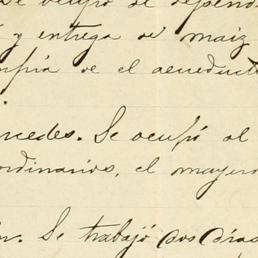 Se ocupó al depend
y entrega de maiz
mpria de el aeueduct
rcedes. Se ocupó al
ordinarios, el mayor
n. Se trabajó dos dias